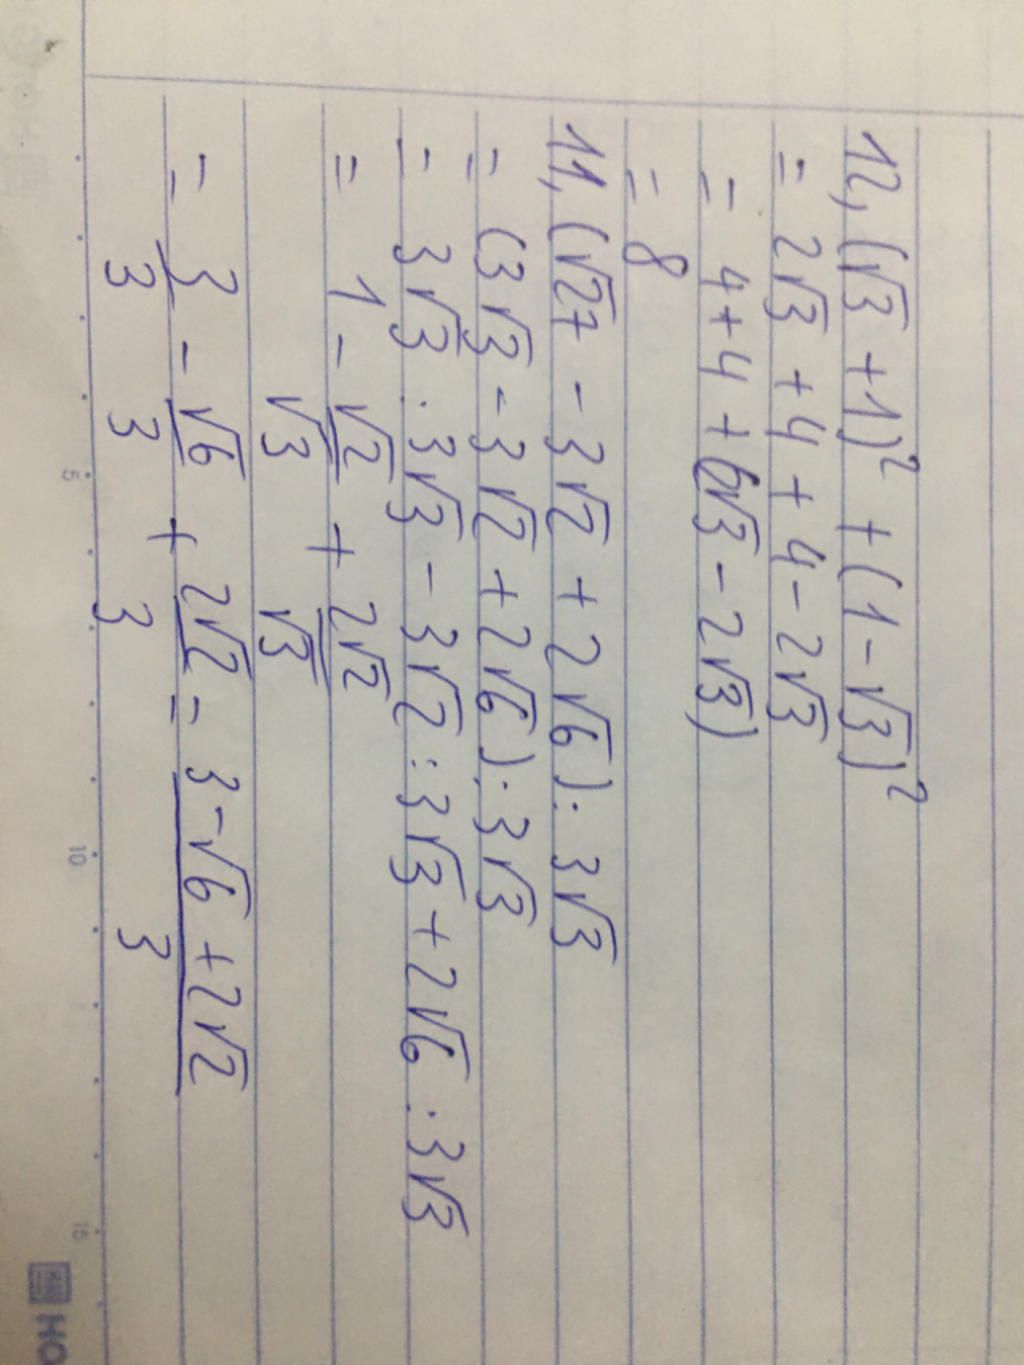 12, (√3 + 1)² + (1 - √3)²
= 2√3 + 4 + 4 - 2√3
= 4 + 4 + (2√3 - 2√3)
= 8
11, (√27 - 3√2 + 2√6) : 3√3
= (3√3 - 3√2 + 2√6) : 3√3
= 3√3 : 3√3 - 3√2 : 3√3 + 2√6 : 3√3
= 1 - √2/√3 + 2√2/√3
= 3/3 - √6/3 + 2√2/3 = (3 - √6 + 2√2)/3
5
10
15
HO